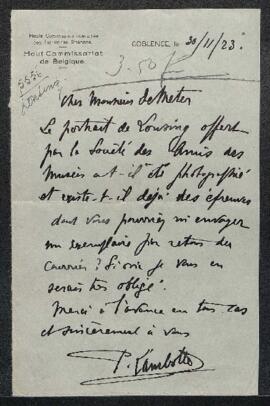 Haute Commission Interalliée
des Territoires Rhénans
Haut Commissariat
de Belgique.
COBLENCE, le 30/11/23.
3.50
Cher Monsieur de Meter
Le portrait de offert
par la Société des Amis des
Musées a-t-il été photographié
et existe-t-il déjà des épreuves
dont vous pourriez m'envoyer
un exemplaire par retour du
courrier? Si oui je vous en
serais très obligé.
Merci à l'avance en tous cas
et sincèrement à vous
P. Lambotte